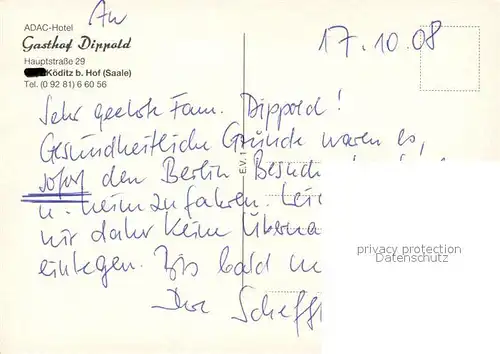 An
ADAC-Hotel
Gasthof Dippold
Hauptstraße 29
Köditz b. Hof (Saale)
Tel. (0 92 81) 6 60 56
17.10.08
Sehr geehrte Fam. Dippold!
Gesundheitliche Gründe waren es,
sofort den Berlin-Besuch
u. heim zu fahren.
wir daher keine
einlegen. Bis bald
E.V. 1
privacy protection
Datenschutz